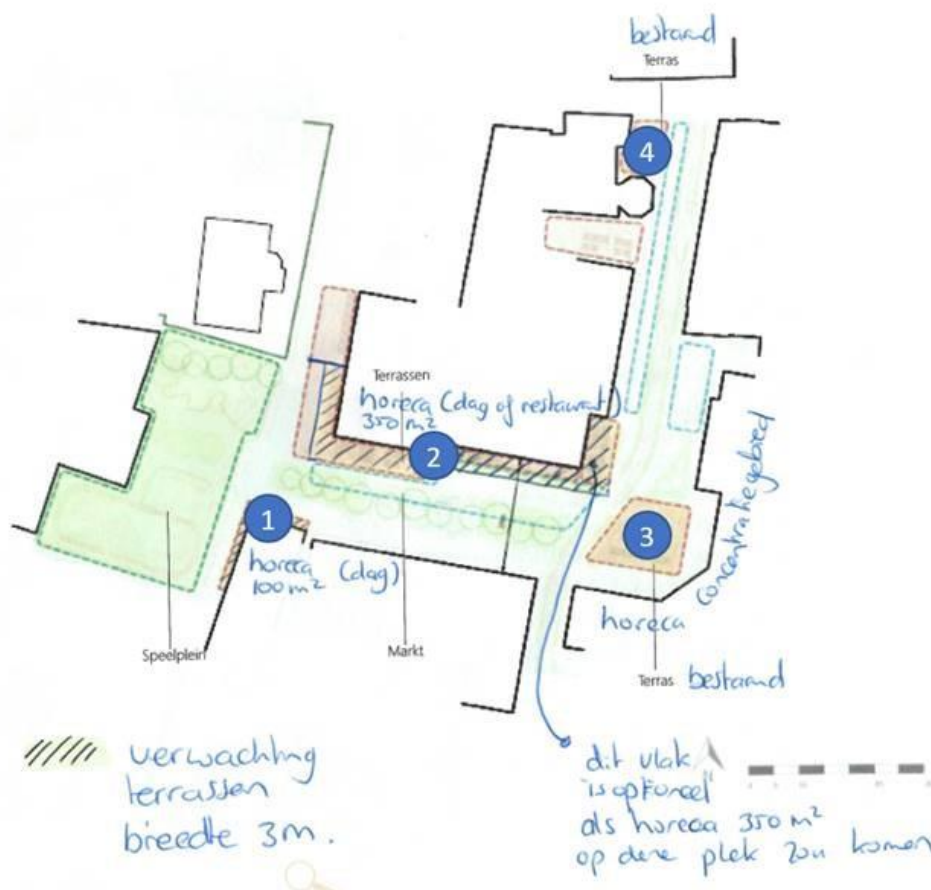 bestaand
Terras
4
Terrassen
horeca (dag of restaurant)
350 m²
2
1
3
horeca (dag)
100 m²
concentratiegebied
horeca
Speelplein
Markt
Terras bestaand
verwachting
terrassen
breedte 3m.
dit vlak
is optioneel
als horeca 350 m²
op deze plek zou komen